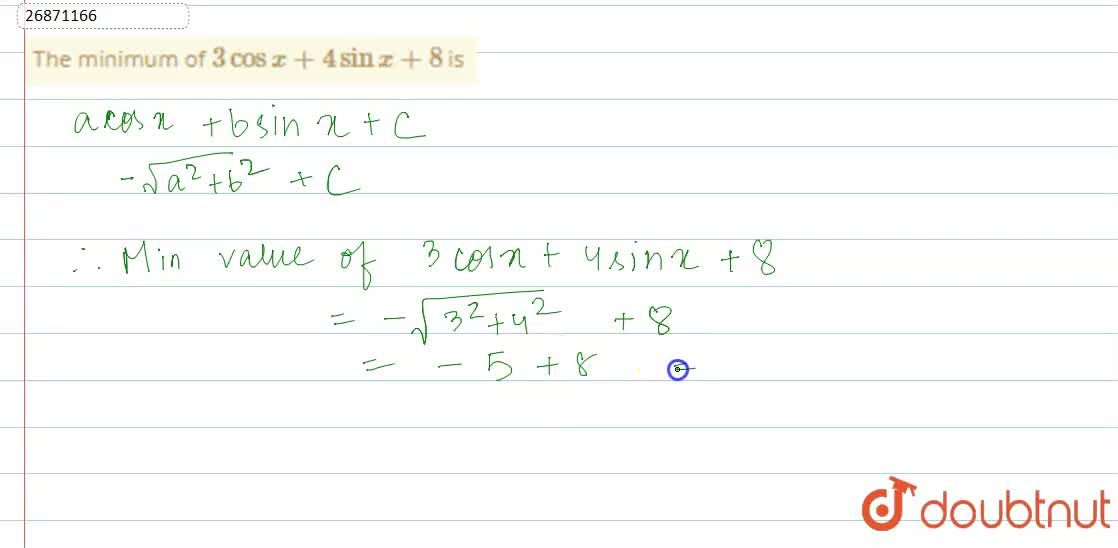 26871166
The minimum of 3 cos x + 4 sin x + 8 is
a cos x + b sin x + C
-√a²+b² + C
∴ Min value of 3 cos x + 4 sin x + 8
= -√3²+4² + 8
= - 5 + 8 =
doubtnut